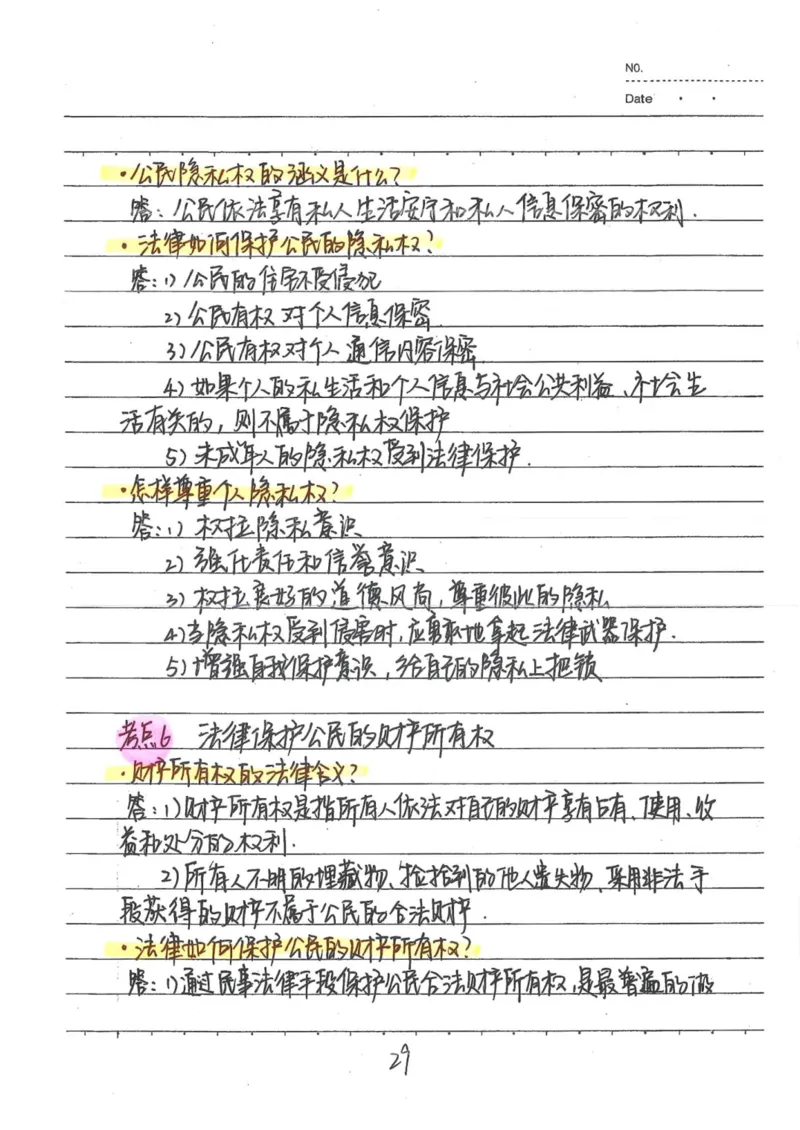 NO.
Date · ·
·公民隐私权的涵义是什么?
答:公民依法享有私人生活安宁和私人信息保密的权利.
·法律如何保护公民的隐私权?
答:1)公民的住宅不受侵犯
2)公民有权对个人信息保密
3)公民有权对个人通信内容保密
4)如果个人的私生活和个人信息与社会公共利益、社会生
活有关的,则不属于隐私权保护
5)未成年人的隐私权受到法律保护.
·怎样尊重个人隐私权?
答:1)权拉隐私意识
2)强化责任和信誉意识
3)权拉良好的道德风尚,尊重彼此的隐私
4)当隐私权受到侵害时,应勇敢地拿起法律武器保护.
5)增强自我保护意识,给自己的隐私上把锁
考点6 法律保护公民的财产所有权
·财产所有权的法律含义?
答:1)财产所有权是指所有人依法对自己的财产享有占有、使用、收
益和处分的权利.
2)所有人不明的埋藏物、捡拾到的他人遗失物、采用非法手
段获得的财产不属于公民的合法财产.
·法律如何保护公民的财产所有权?
答:1)通过民事法律手段保护公民合法财产所有权,是最普遍的做
29